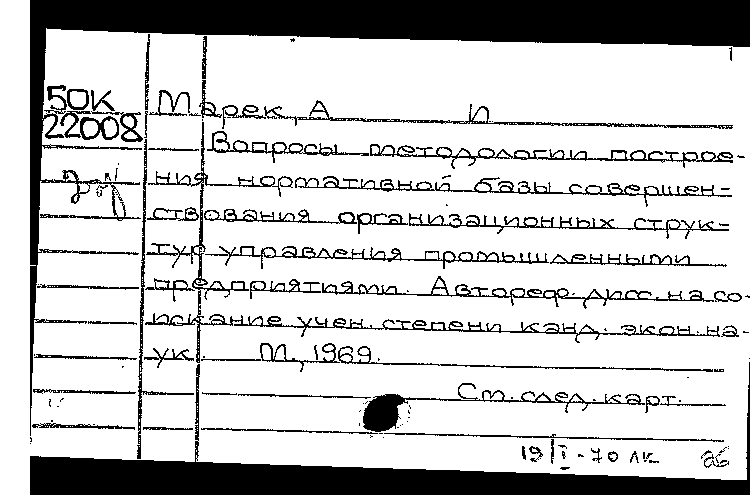 50К
22008
Марек, А И
Вопросы методологии построе-
ния нормативной базы совершен-
ствования организационных струк-
тур управления промышленными
предприятиями. Автореф. дисс. на со-
искание учен. степени канд. экон. на-
ук. М., 1969.
См. след. карт.
19/I-70 ЛК 26